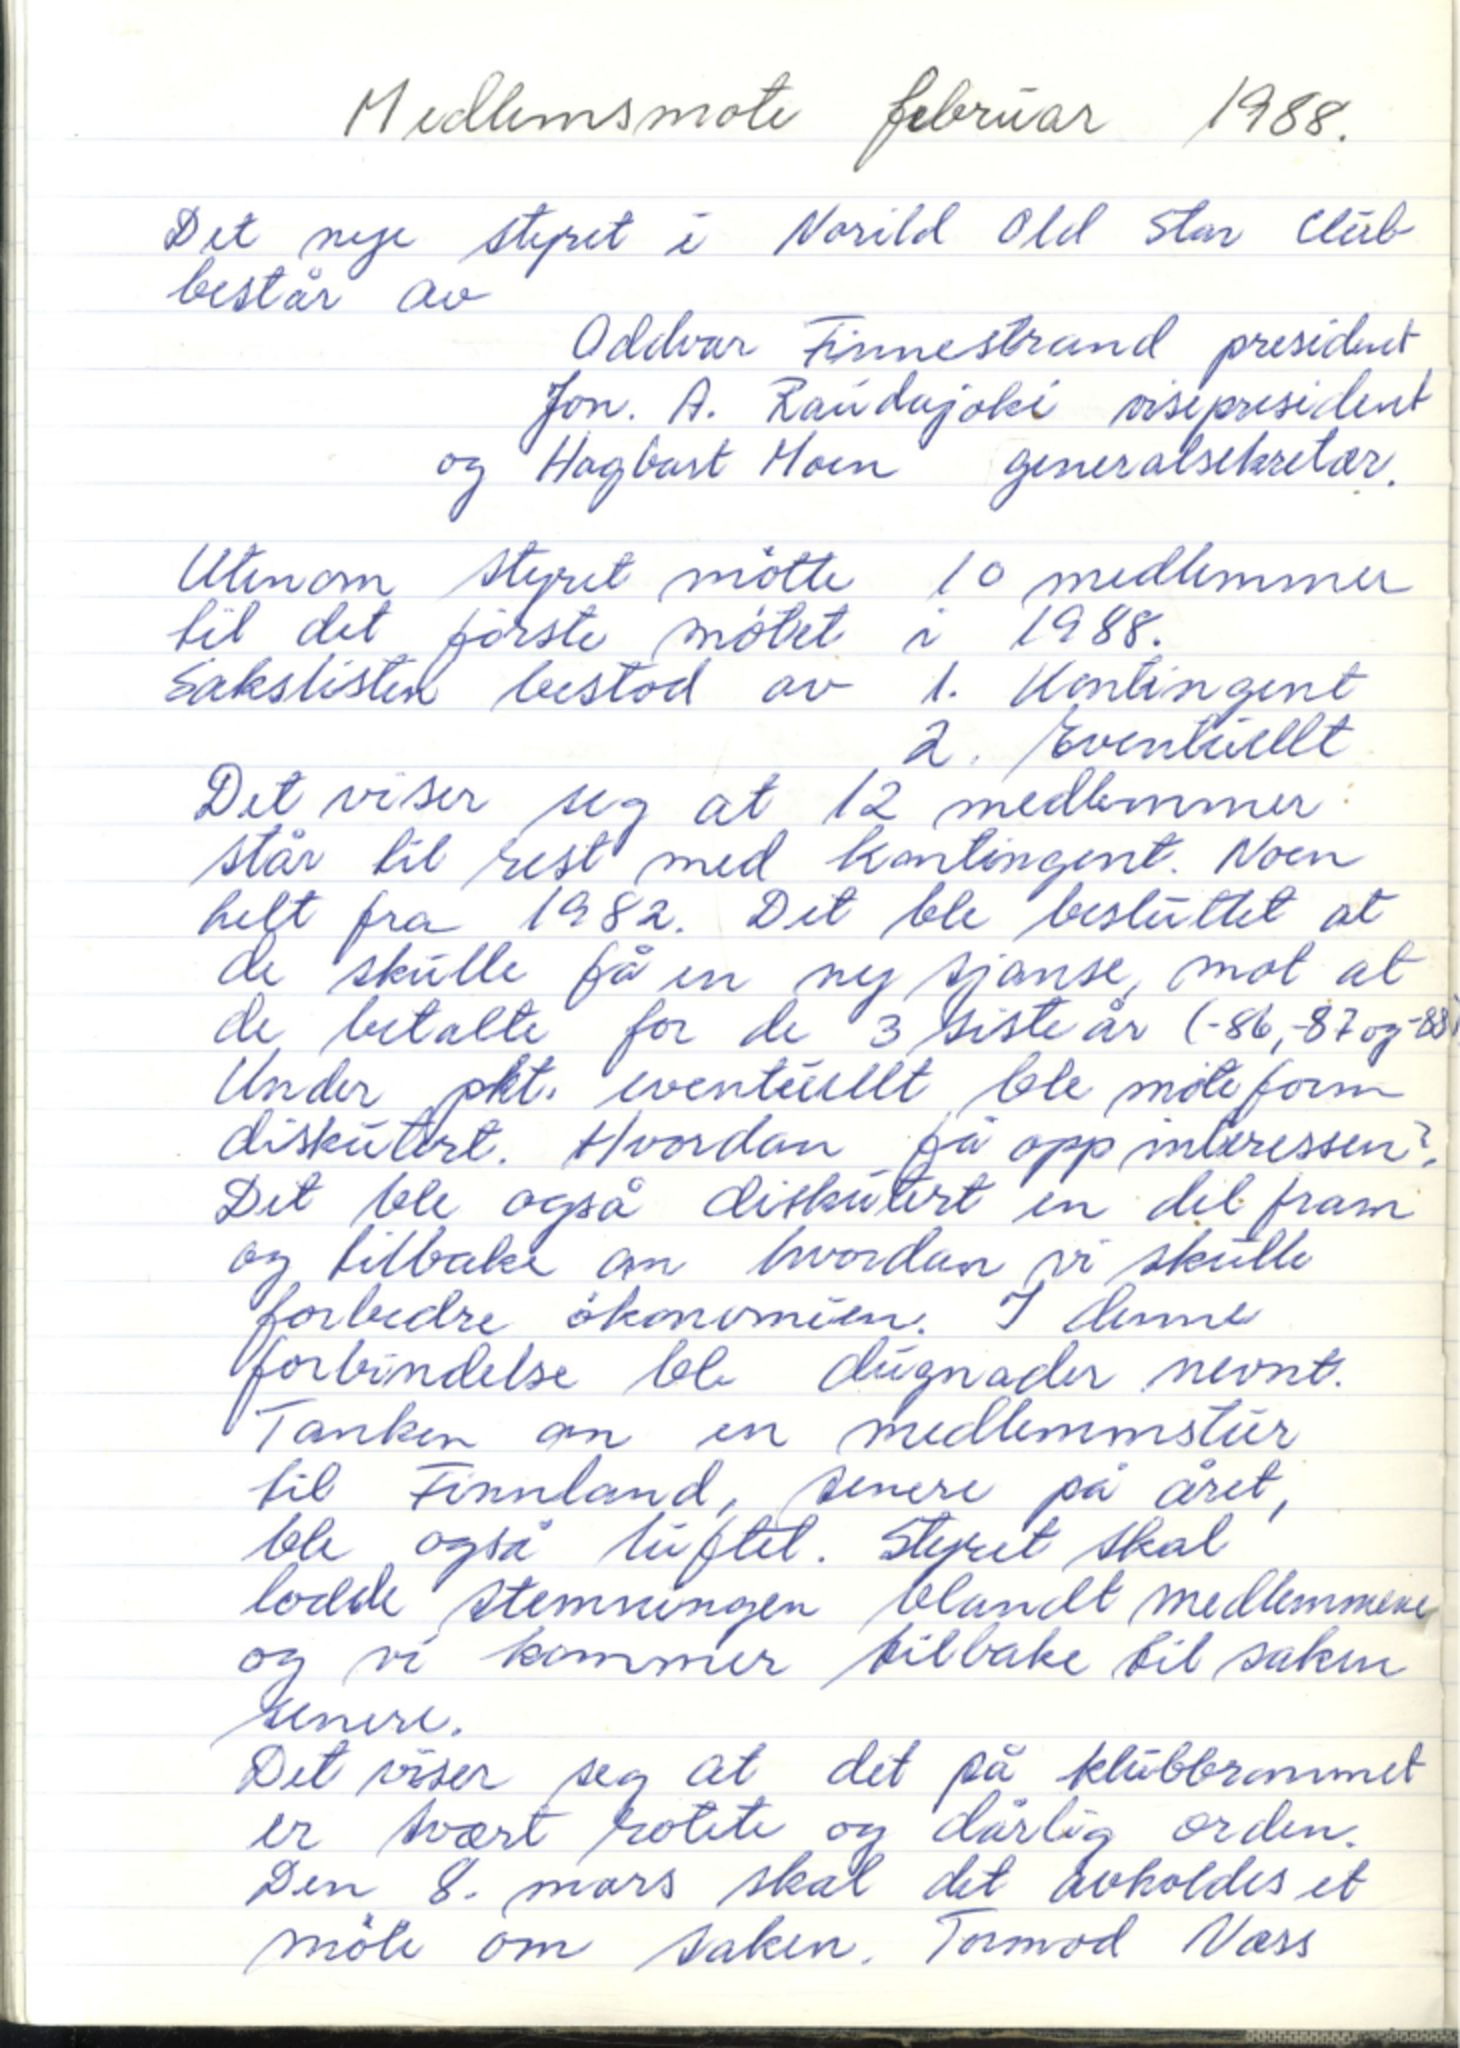 Medlemsmøte februar 1988.
Det nye styret i Norild Old Star Club
består av
Oddvar Finnestrand president
Jon. A. Raudajoki visepresident
og Hagbart Moen generalsekretær.
Utenom styret møtte 10 medlemmer
til det første møtet i 1988.
Sakslisten bestod av 1. Kontingent
2. Eventuellt
Det viser seg at 12 medlemmer
står til rest med kontingent. Noen
helt fra 1982. Det ble besluttet at
de skulle få en ny sjanse, mot at
de betalte for de 3 siste år (-86,-87 og -88)
Under pkt. eventuellt ble møteform
diskutert. Hvordan få opp interessen?
Det ble også diskutert en del fram
og tilbake om hvordan vi skulle
forbedre økonomien. I denne
forbindelse ble dugnader nevnt.
Tanken om en medlemmstur
til Finnland, senere på året,
ble også luftet. Styret skal
lodde stemningen blandt medlemmene
og vi kommer tilbake til saken
senere.
Det viser seg at det på klubbrommet
er svært rotete og dårlig orden.
Den 8. mars skal det avholdes et
møte om saken. Tormod Næss